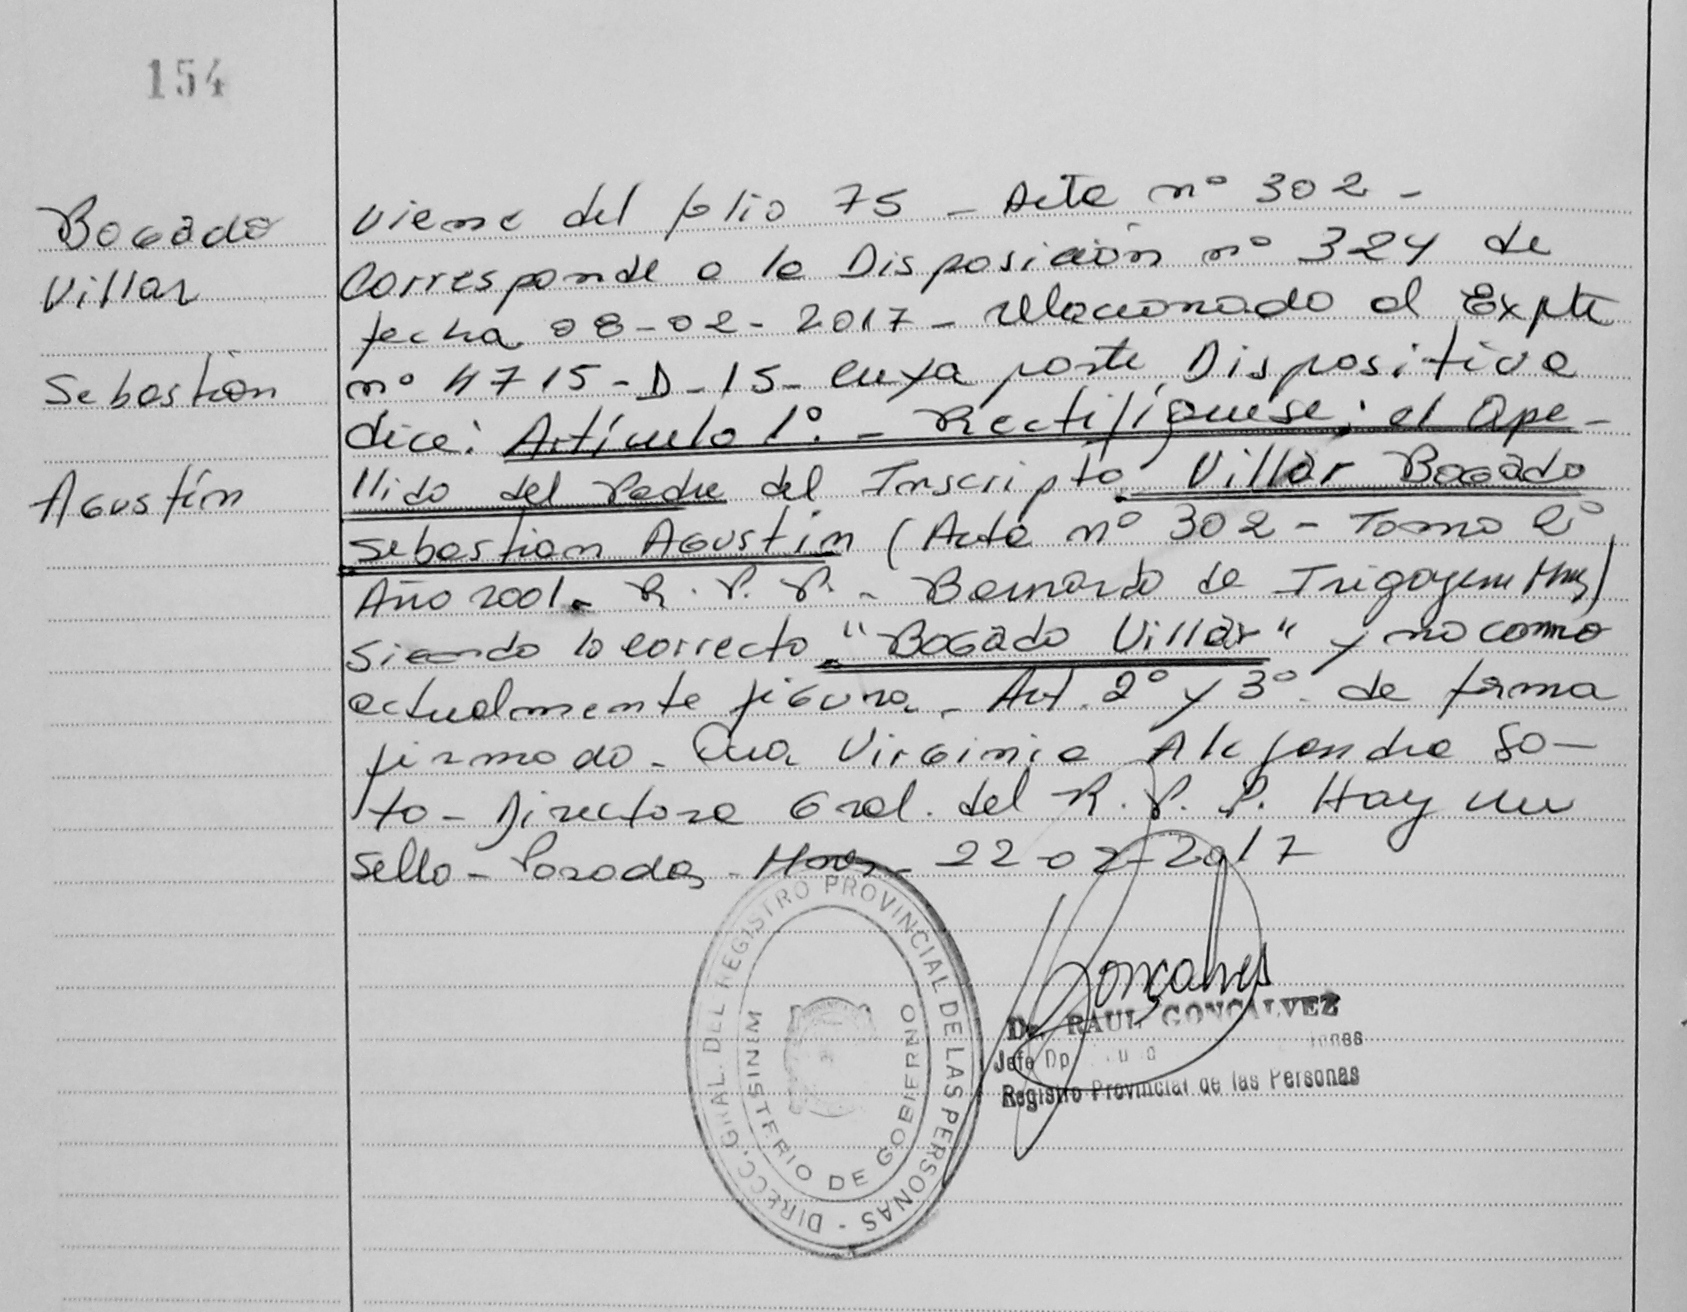 154
Bogado
Villar
Sebastián
Agustín
Viene del folio 75 - Acta nº 302 -
Corresponde a la Disposición nº 324 de
fecha 08-02-2017 - relacionado al Expte
nº 4715-D-15- cuya parte Dispositiva
dice: Artículo 1º. - Rectifíquese; el Ape-
llido del Padre del Inscripto. Villar Bogado
Sebastian Agustin (Acta nº 302 - Tomo 2º
Año 2001. R. P. P. - Bernardo de Irigoyen Mnes)
Siendo lo correcto "Bogado Villar" y no como
actualmente figura. Art. 2º y 3º. de forma
firmado. Virginia Alejandra So-
to - Directora Gral. del R. P. P. Hay un
Sello - Posadas - Mnes - 22-02-2017
DIRECC. GRAL. DEL REGISTRO PROVINCIAL DE LAS PERSONAS -
MINISTERIO DE GOBIERNO
Gonçalves
Dr. RAUL GONCALVEZ
Jefe Dp
Registro Provincial de las Personas